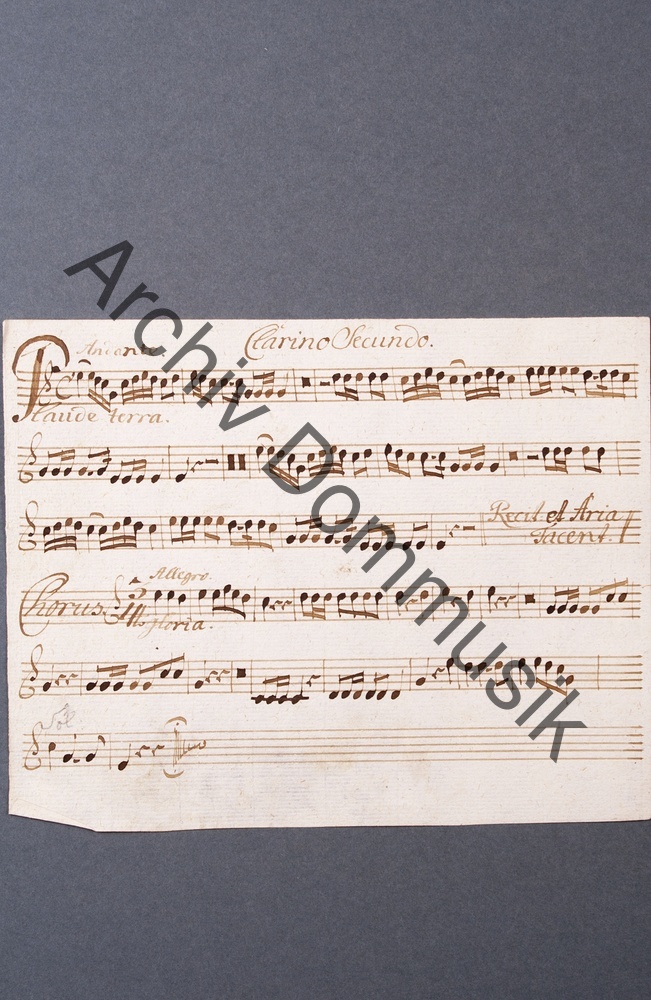 Clarino Secundo.
Andante.
Plaude terra.
Recit. et Aria
Tacent.
Chorus.
Allegro.
gloria.
Archiv Dommusik